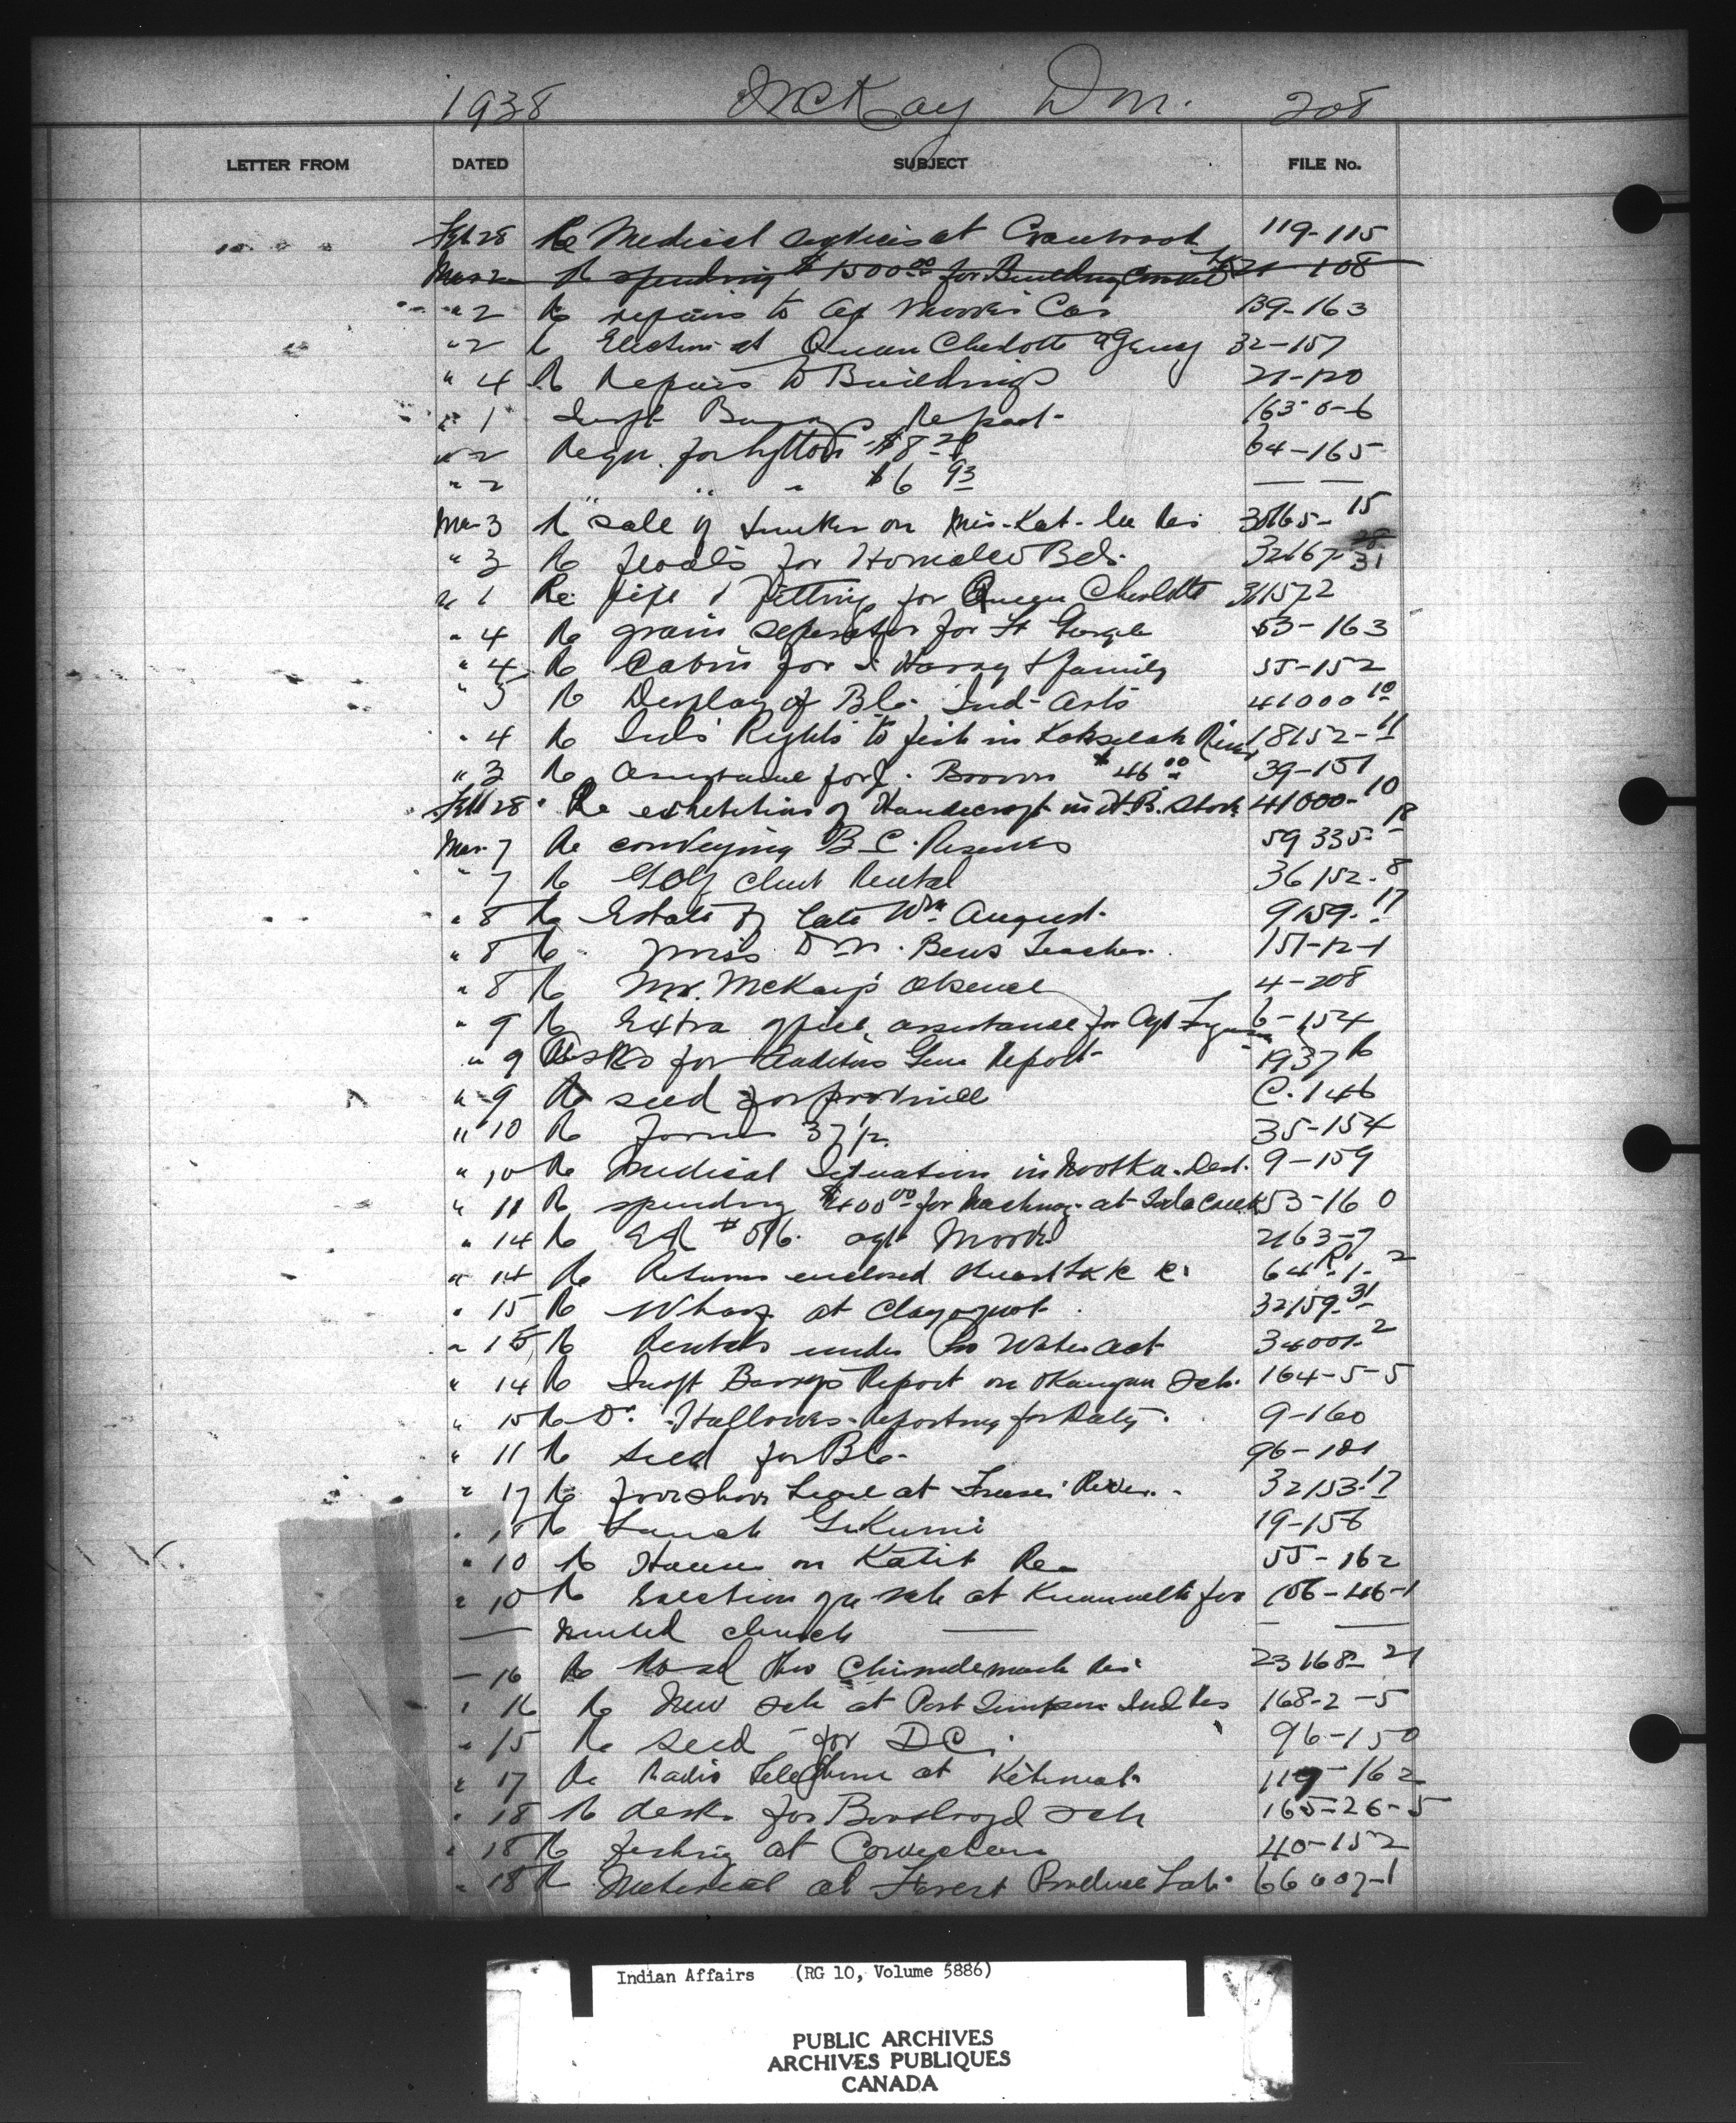 1938 McKay D M. 208
LETTER FROM DATED SUBJECT FILE No.
Feb 28 Re Medical services at Cranbrook 119-115
Mar 2 Re spending $1500.00 for Building 21-108
" 2 Re repairs to Agt Moore's Car 139-163
" 2 Re Election at Queen Charlotte Agency 32-157
" 4 Re Repairs to Buildings 21-120
" 1 Inspt Barry's Report 163-0-6
" 2 Requ. for Lytton $8.20 64-165
" 2 " " $6.93 — —
Mar 3 Re sale of timber on Mis-Kat-la Res 30165-15
" 3 Re floods for Homalco Bd. 32167-31
" 1 Re pipe & fittings for Queen Charlotte 31157-2
" 4 Re grain separator for Ft George 53-163
" 4 Re Cabin for Harry & family 55-152
" 5 Re Display of B.C. Ind- Arts 41000-10
" 4 Re Inds Rights to fish in Koksilah River 18152-11
" 3 Re Assistance for J. Brown $46.00 39-151
Feb 28 Re exhibition of Handicraft in H.B. Store 41000-10
Mar 7 Re conveying B.C. Reserves 59335-18
" 7 Re Golf Club Rental 36152-8
" 8 Re Estate of late Wm August 9159-17
" 8 Re Miss D M. Bews Teacher 151-12-1
" 8 Re Mr. McKay's absence 4-208
" 9 Re Extra office assistance for Agt 6-154
" 9 Asks for Auditor Gen Report 1937
" 9 Re seed for province C.146
" 10 Re Forms 37½ 35-154
" 10 Re Medical Situation in Nootka. Dist. 9-159
" 11 Re spending $400.00 for at Soda Creek 53-160
" 14 Re Agt Moore 2163-7
" 14 Re Returns enclosed Stuart Lk 64-1-2
" 15 Re Wharf at Clayoquot 32159-31
" 15 Re Rentals under Pro Water Act 34001-2
" 14 Re Inspt Barry's Report on Okanagan Sch. 164-5-5
" 15 Re Dr. Hallowes reporting for Duty. 9-160
" 11 Re Seed for B.C. 96-101
" 17 Re foreshore Lease at Fraser River 32153-17
" 18 Re Launch Gikumi 19-156
" 10 Re Houses on Katit Res 55-162
" 10 Re Erection of a sch at Kincolith for 106-46-1
— United Church — — —
— 16 Re Road thro Chimdemash Res 23168-21
" 16 Re New sch at Port Simpson Ind Res 168-2-5
" 15 Re seed for D C. 96-150
" 17 Re Radio Telephone at Kitimat 119-162
" 18 Re desks for Boothroyd sch 165-26-5
" 18 Re fishing at Cowichan 40-152
" 18 Re Material at Forest Produce Lab. 66007-1
Indian Affairs (RG 10, Volume 5886)
PUBLIC ARCHIVES
ARCHIVES PUBLIQUES
CANADA